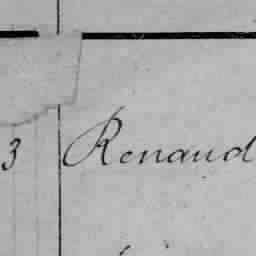 3 Renaud